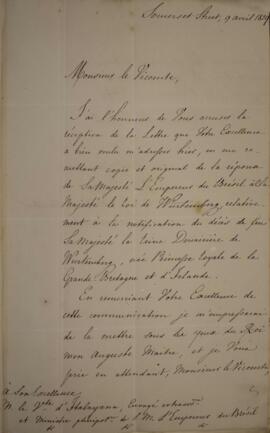 Somerset Street, 9 avril 1829
Monsieur le Vicomte,
J'ai l'honneur de Vous accuser la
réception de la Lettre que Votre Excellence
a bien voulu m'adresser hier, en me re-
mettant copie et original de la réponse
de Sa Majesté L'Empereur du Brésil à Sa
Majesté le Roi de Wurtemberg, relative-
ment à la notification du décès de feue
Sa Majesté la Reine Douairière de
Wurtemberg, née Princesse Royale de la
Grande Bretagne et d'Irlande.
En remerciant Votre Excellence de
cette communication je m'empresserai
de la mettre sous les yeux du Roi
mon Auguste Maitre, et je Vous
prie en attendant, Monsieur le Vicomte,
à Son Excellence
M. le Vte. d'Itabayana, Envoyé extraord.
et Ministre plénipot. de S. M. l'Empereur du Brésil